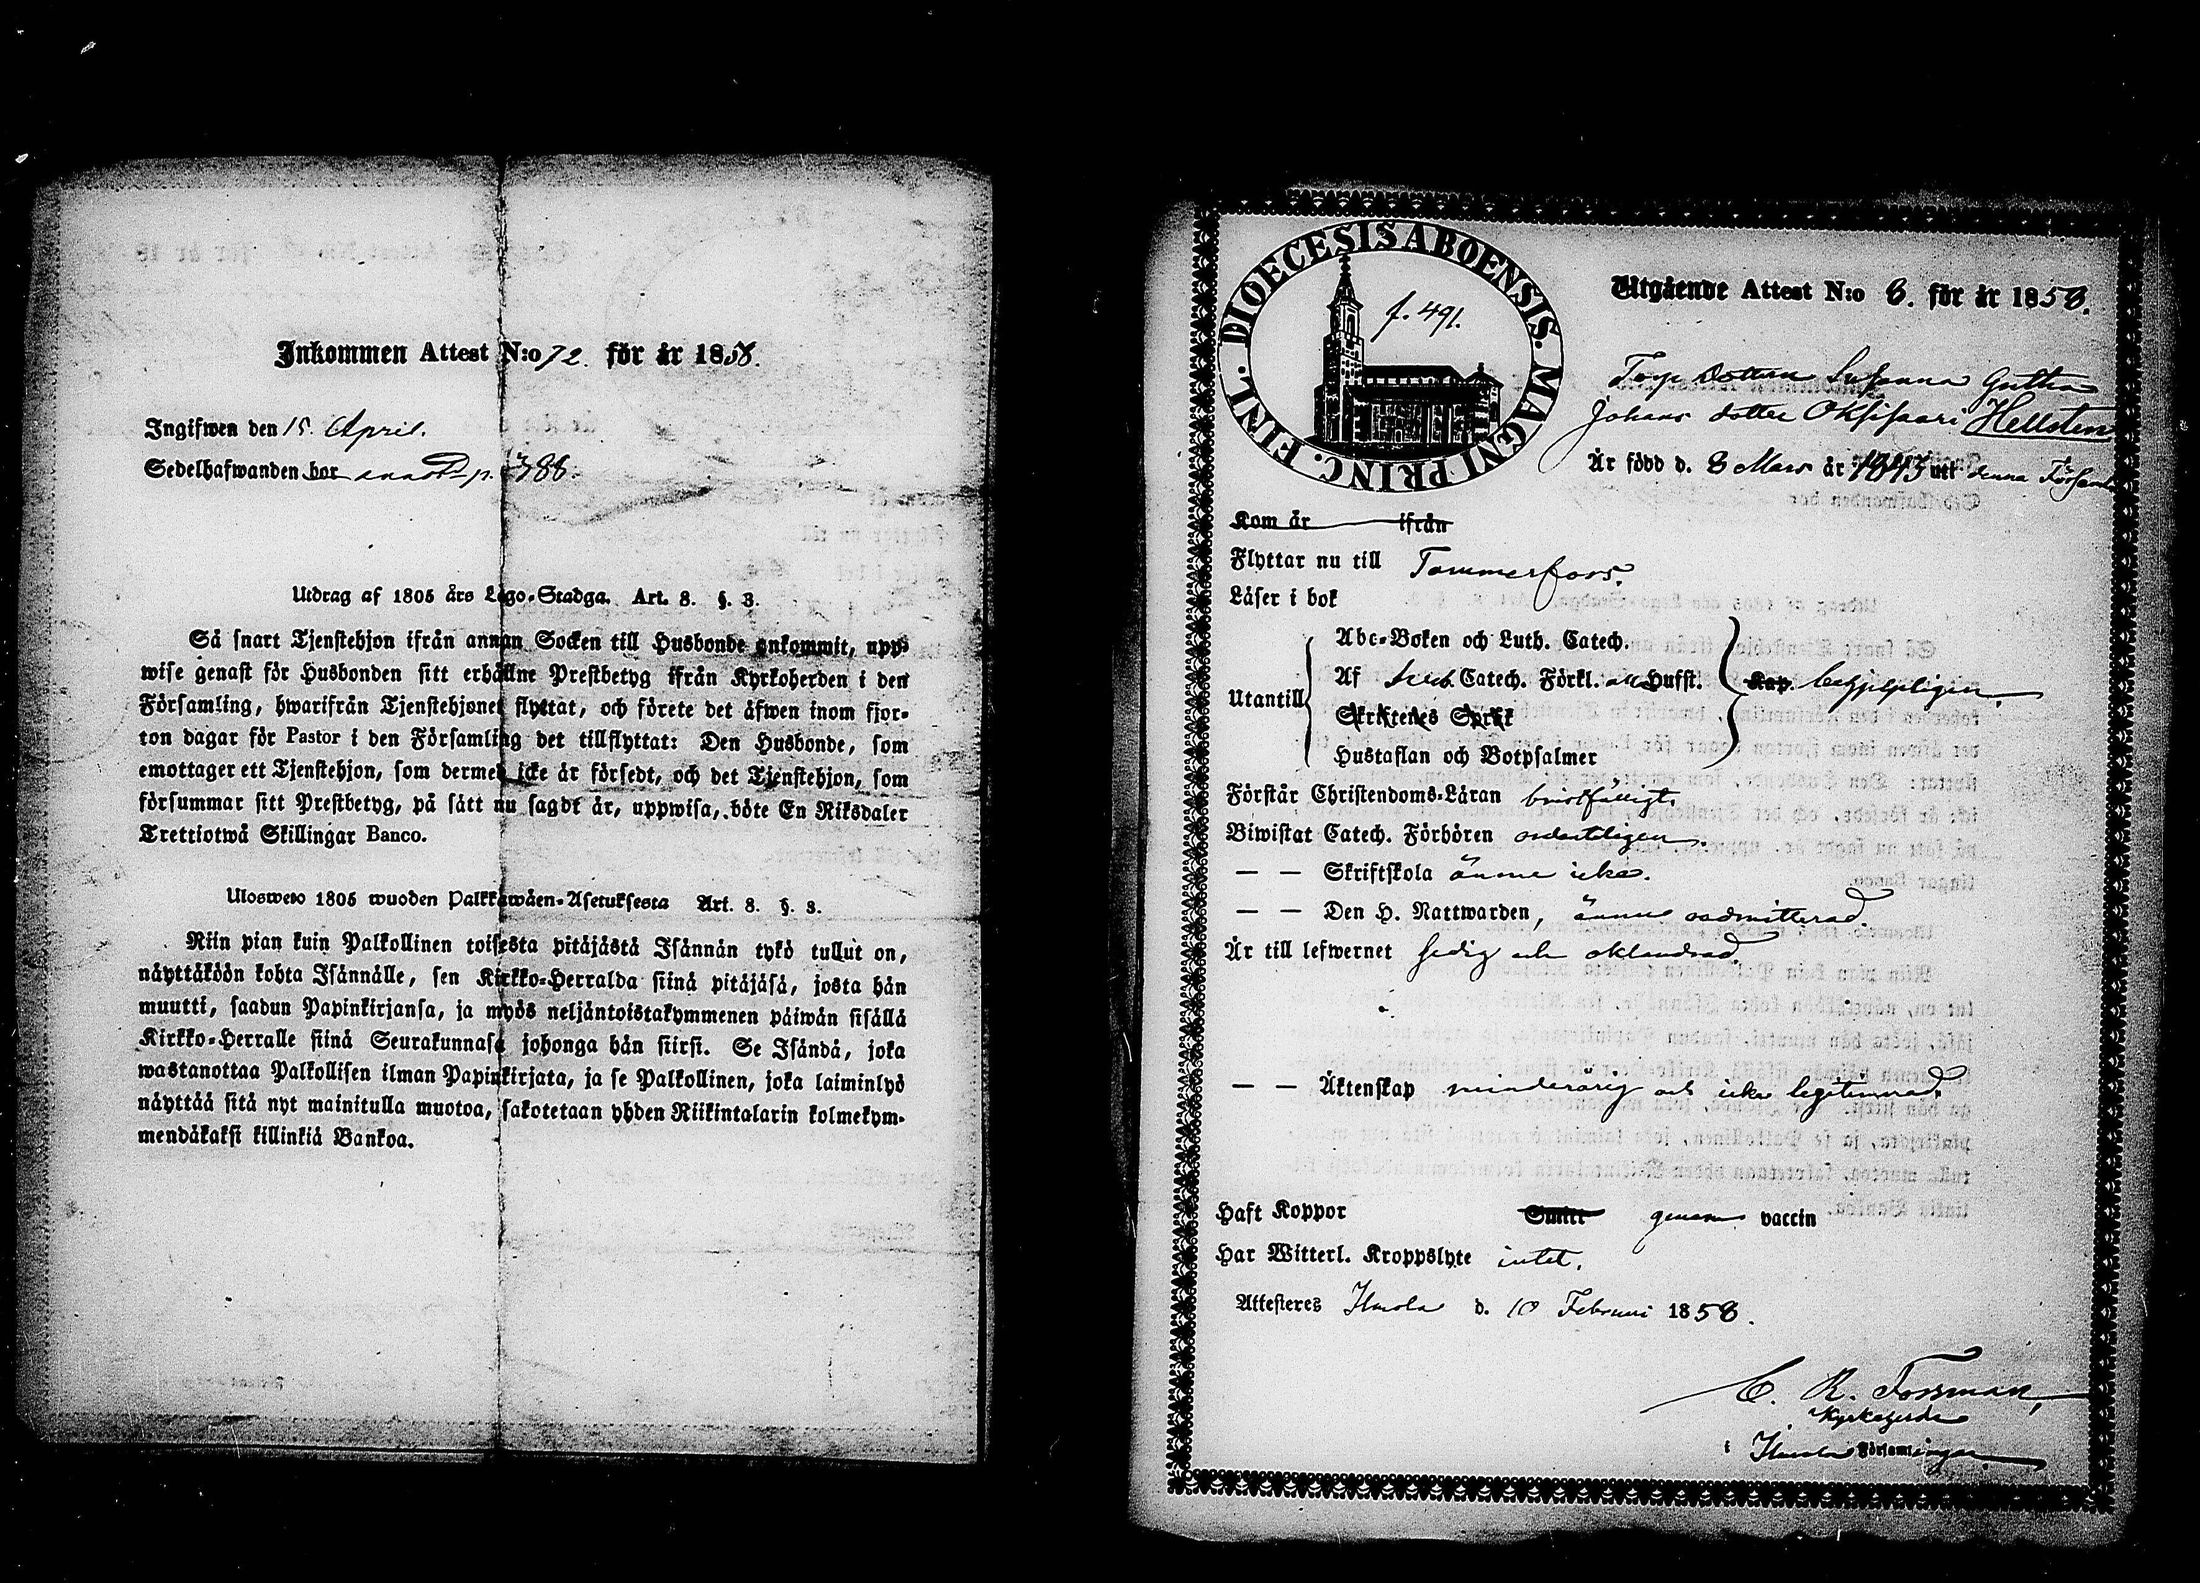 Inkommen Attest N:o 72. för år 1858.
Ingifwen den 15. April.
Sedelhafwanden bor p. 388.
Utdrag af 1805 års Lego-Stadga. Art. 8. §. 3.
Så snart Tjenstehjon ifrån annan Socken till Husbonde ankommit, upp-
wise genast för Husbonden sitt erhållne Prestbetyg ifrån Kyrkoherden i den
Församling, hwarifrån Tjenstehjonet flyttat, och förete det äfwen inom fjor-
ton dagar för Pastor i den Församling det tillflyttat: Den Husbonde, som
emottager ett Tjenstehjon, som dermed icke är försedt, och det Tjenstehjon, som
försummar sitt Prestbetyg, på sätt nu sagdt är, uppwisa, böte En Riksdaler
Trettiotwå Skillingar Banco.
Uloswето 1805 wuoden Palkkawäen-Asetuksesta Art. 8. §. 3.
Niin pian kuin Palkollinen toisesta pitäjästä Isännän tykö tullut on,
näyttäköön kohta Isännälle, sen Kirkko-Herralda siinä pitäjäsä, josta hän
muutti, saadun Papinkirjansa, ja myös neljäntoistakymmenen päiwän sisällä
Kirkko-Herralle siinä Seurakunnasa johonga hän siirsi. Se Isändä, joka
wastanottaa Palkollisen ilman Papinkirjata, ja se Palkollinen, joka laiminlyö
näyttää sitä nyt mainitulla muotoa, sakotetaan yhden Riikintalarin kolmekym-
mendäkaksi killinkiä Bankoa.
DIOECESIS ABOENSIS. MAGNI PRINC. FINL.
f. 491.
Utgående Attest N:o 8. för år 1858.
Torp dottern Susanna Gretha
Johans dotter Oksisaari Hellsten
Är född d. 8 Mars år 1843 uti denna Församl.
Kom år ifrån
Flyttar nu till Tammerfors.
Läser i bok
Abc-Boken och Luth. Catech.
Utantill Af Luth. Catech. Förkl. Hufst. Kap. begripligen.
Skriftenes Språk
Hustaflan och Botpsalmer
Förstår Christendoms-Läran bristfälligt.
Biwistat Catech. Förhören ordentligen.
— — Skriftskola ännu icke.
— — Den H. Nattwarden, ännu oadmitterad.
Är till lefwernet sedig och oklandrad.
— — Äktenskap minderårig och icke legitimerad.
Haft Koppor Smitt genom vaccin
Har Witterl. Kroppslyte intet.
Attesteres Ilmola d. 10 Februari 1858.
C. R. Forsman,
Kyrkoherde
i Ilmola Församlingar.